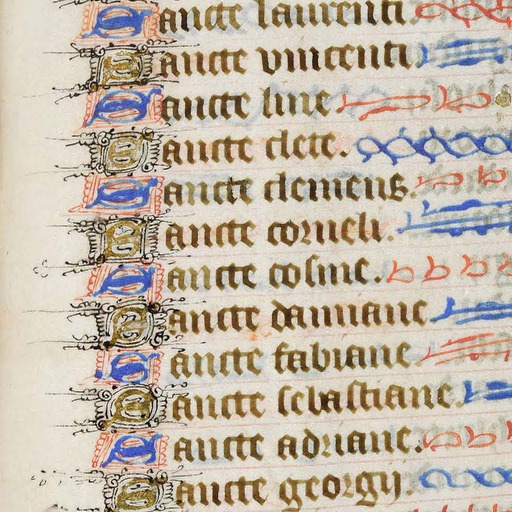 Sancte laurenti.
Sancte vincenti.
Sancte line
Sancte clete.
Sancte clemens.
Sancte corneli.
Sancte cosme.
Sancte damiane
Sancte fabiane
Sancte sebastiane.
Sancte adriane.
Sancte georgij.